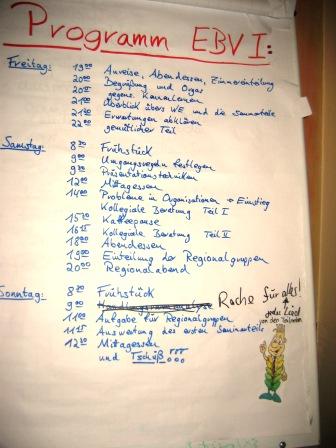 Programm EBV I:
Freitag: 19⁰⁰ Anreise, Abendessen, Zimmereinteilung
20⁰⁰ Begrüßung und Orga
20¹⁵ gegens. Kennenlernen
21⁰⁰ Überblick übers WE und die Seminarteile
21³⁰ Erwartungen abklären
22⁰⁰ gemütlicher Teil
Samstag: 8³⁰ Frühstück
9⁰⁰ Umgangsregeln festlegen
9³⁰ Präsentationstechniken
12⁰⁰ Mittagessen
14⁰⁰ Probleme in Organisationen → Einstieg
Kollegiale Beratung Teil I
15³⁰ Kaffeepause
16¹⁵ Kollegiale Beratung Teil II
18⁰⁰ Abendessen
19⁰⁰ Einteilung der Regionalgruppen
20⁰⁰ Regionalabend
Sonntag: 8³⁰ Frühstück
9⁰⁰ Rache für alles!
11⁰⁰ Aufgabe für Regionalgruppen
11¹⁵ Auswertung des ersten Seminarteils
12³⁰ Mittagessen
und Tschüß!!!